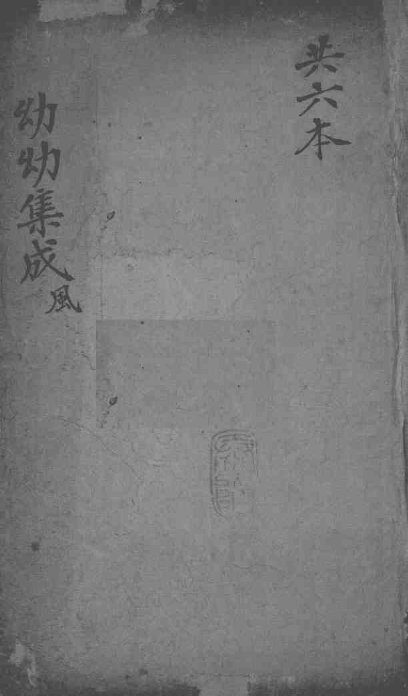 共六本
幼幼集成
風